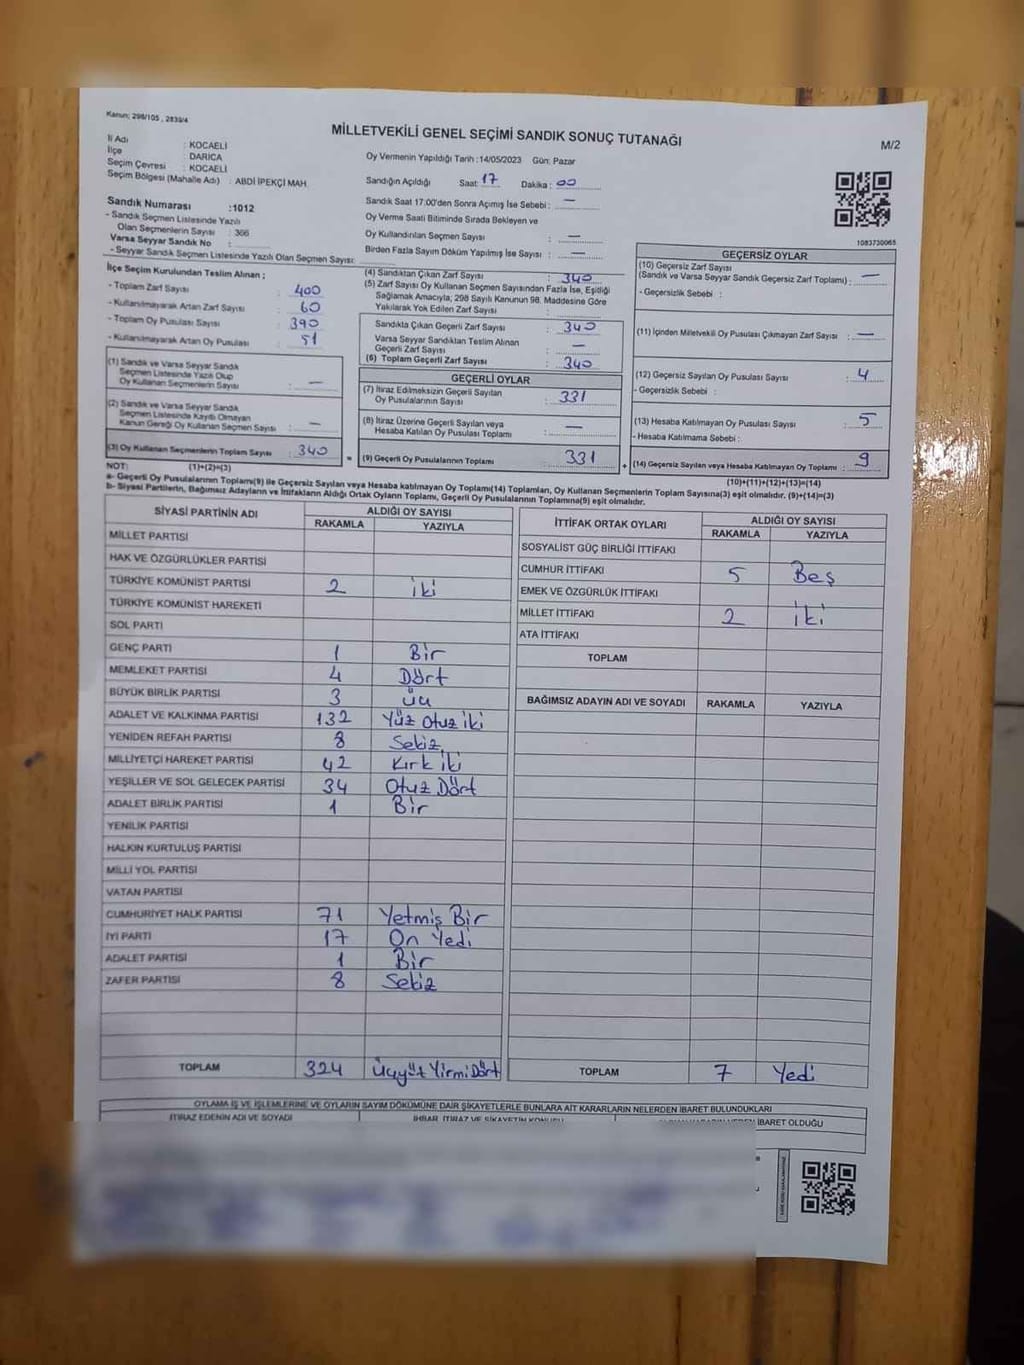 Kanun; 298/105 , 2839/4
MİLLETVEKİLİ GENEL SEÇİMİ SANDIK SONUÇ TUTANAĞI
M/2
İl Adı : KOCAELİ
İlçe : DARICA
Seçim Çevresi : KOCAELİ
Seçim Bölgesi (Mahalle Adı) : ABDİ İPEKÇİ MAH.
Oy Vermenin Yapıldığı Tarih :14/05/2023 Gün: Pazar
Sandığın Açıldığı Saat: 17 Dakika : 00
Sandık Numarası :1012
- Sandık Seçmen Listesinde Yazılı
Olan Seçmenlerin Sayısı : 366
Varsa Seyyar Sandık No :
- Seyyar Sandık Seçmen Listesinde Yazılı Olan Seçmen Sayısı:
Sandık Saat 17.00'den Sonra Açımış İse Sebebi : —
Oy Verme Saati Bitiminde Sırada Bekleyen ve
Oy Kullandırılan Seçmen Sayısı : —
Birden Fazla Sayım Döküm Yapılmış İse Sayısı : —
1083730065
İlçe Seçim Kurulundan Teslim Alınan ;
- Toplam Zarf Sayısı : 400
- Kullanılmayarak Artan Zarf Sayısı : 60
- Toplam Oy Pusulası Sayısı : 390
- Kullanılmayarak Artan Oy Pusulası : 51
(1) Sandık ve Varsa Seyyar Sandık
Seçmen Listesinde Yazılı Olup
Oy Kullanan Seçmenlerin Sayısı : —
(2) Sandık ve Varsa Seyyar Sandık
Seçmen Listesinde Kayıtlı Olmayan
Kanun Gereği Oy Kullanan Seçmen Sayısı : —
(3) Oy Kullanan Seçmenlerin Toplam Sayısı : 340
(4) Sandıktan Çıkan Zarf Sayısı : 340
(5) Zarf Sayısı Oy Kullanan Seçmen Sayısından Fazla İse, Eşitliği
Sağlamak Amacıyla; 298 Sayılı Kanunun 98. Maddesine Göre
Yakılarak Yok Edilen Zarf Sayısı :
Sandıkta Çıkan Geçerli Zarf Sayısı : 340
Varsa Seyyar Sandıktan Teslim Alınan
Geçerli Zarf Sayısı : —
(6) Toplam Geçerli Zarf Sayısı : 340
GEÇERLİ OYLAR
(7) İtiraz Edilmeksizin Geçerli Sayılan
Oy Pusulalarının Sayısı : 331
(8) İtiraz Üzerine Geçerli Sayılan veya
Hesaba Katılan Oy Pusulası Toplamı : —
(9) Geçerli Oy Pusulalarının Toplamı : 331
GEÇERSİZ OYLAR
(10) Geçersiz Zarf Sayısı
(Sandık ve Varsa Seyyar Sandık Geçersiz Zarf Toplamı) : —
- Geçersizlik Sebebi :
(11) İçinden Milletvekili Oy Pusulası Çıkmayan Zarf Sayısı : —
(12) Geçersiz Sayılan Oy Pusulası Sayısı : 4
- Geçersizlik Sebebi :
(13) Hesaba Katılmayan Oy Pusulası Sayısı : 5
- Hesaba Katılmama Sebebi :
(14) Geçersiz Sayılan veya Hesaba Katılmayan Oy Toplamı : 9
NOT: (1)+(2)=(3) (10)+(11)+(12)+(13)=(14)
a- Geçerli Oy Pusulalarının Toplamı(9) ile Geçersiz Sayılan veya Hesaba katılmayan Oy Toplamı(14) Toplamları, Oy Kullanan Seçmenlerin Toplam Sayısına(3) eşit olmalıdır. (9)+(14)=(3)
b- Siyasi Partilerin, Bağımsız Adayların ve İttifakların Aldığı Ortak Oyların Toplamı, Geçerli Oy Pusulalarının Toplamına(9) eşit olmalıdır.
SİYASİ PARTİNİN ADI ALDIĞI OY SAYISI
RAKAMLA YAZIYLA
MİLLET PARTİSİ
HAK VE ÖZGÜRLÜKLER PARTİSİ
TÜRKİYE KOMÜNİST PARTİSİ 2 iki
TÜRKİYE KOMÜNİST HAREKETİ
SOL PARTİ
GENÇ PARTİ 1 Bir
MEMLEKET PARTİSİ 4 Dört
BÜYÜK BİRLİK PARTİSİ 3 üç
ADALET VE KALKINMA PARTİSİ 132 Yüz otuz iki
YENİDEN REFAH PARTİSİ 8 Sekiz
MİLLİYETÇİ HAREKET PARTİSİ 42 Kırk iki
YEŞİLLER VE SOL GELECEK PARTİSİ 34 Otuz Dört
ADALET BİRLİK PARTİSİ 1 Bir
YENİLİK PARTİSİ
HALKIN KURTULUŞ PARTİSİ
MİLLİ YOL PARTİSİ
VATAN PARTİSİ
CUMHURİYET HALK PARTİSİ 71 Yetmiş Bir
İYİ PARTİ 17 On Yedi
ADALET PARTİSİ 1 Bir
ZAFER PARTİSİ 8 Sekiz
TOPLAM 324 Üçyüz Yirmi Dört
İTTİFAK ORTAK OYLARI ALDIĞI OY SAYISI
RAKAMLA YAZIYLA
SOSYALİST GÜÇ BİRLİĞİ İTTİFAKI
CUMHUR İTTİFAKI 5 Beş
EMEK VE ÖZGÜRLÜK İTTİFAKI
MİLLET İTTİFAKI 2 İki
ATA İTTİFAKI
TOPLAM
BAĞIMSIZ ADAYIN ADI VE SOYADI RAKAMLA YAZIYLA
TOPLAM 7 Yedi
OYLAMA İŞ VE İŞLEMLERİNE VE OYLARIN SAYIM DÖKÜMÜNE DAİR ŞİKAYETLERLE BUNLARA AİT KARARLARIN NELERDEN İBARET BULUNDUKLARI
İTİRAZ EDENİN ADI VE SOYADI İHBAR, İTİRAZ VE ŞİKAYETİN KONUSU İBARET OLDUĞU